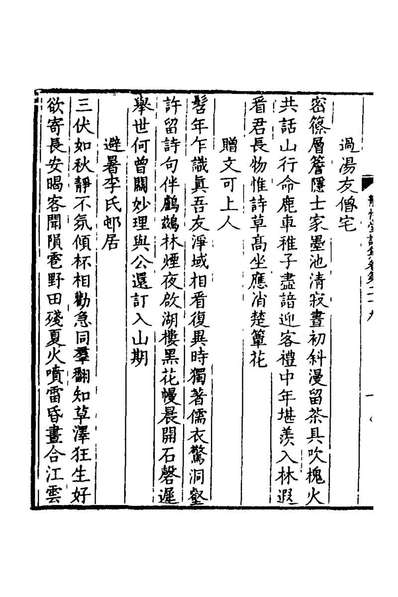 過湯友僧宅
密篠層簷隱士家墨池清寂晝初斜漫留茶具吹槐火
共話山行命鹿車稚子盡諳迎客禮中年堪羨入林遐
看君長物惟詩草高坐應消楚簟花
贈文可上人
髫年乍識眞吾友淨域相看復異時獨著儒衣驚洞壑
許留詩句伴鸕鷀林煙夜啟湖樓黑花幔晨開石磬遲
舉世何曾關妙理與公還訂入山期
避暑李氏邨居
三伏如秋靜不氛傾杯相勸急同羣翻知草澤狂生好
欲寄長安暍客聞隕雹野田殘夏火噴雷昏晝合江雲